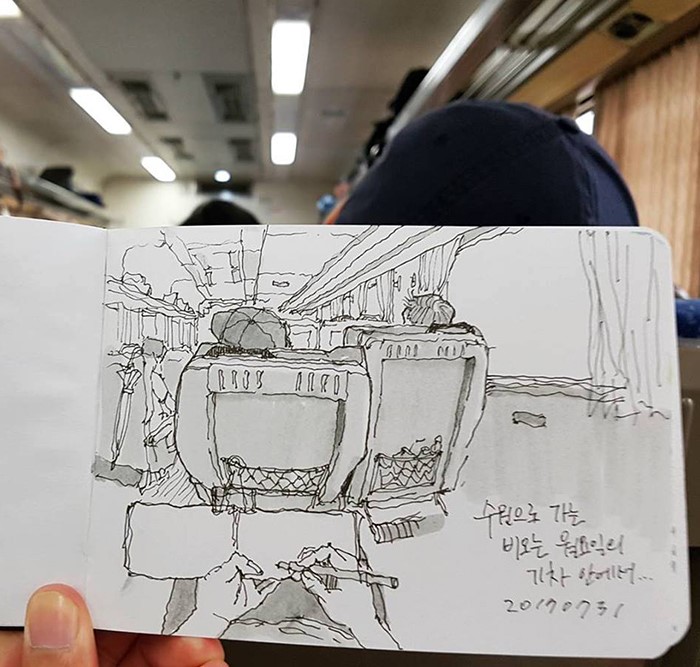 수원으로 가는
비오는 월요일의
기차 안에서...
20170731